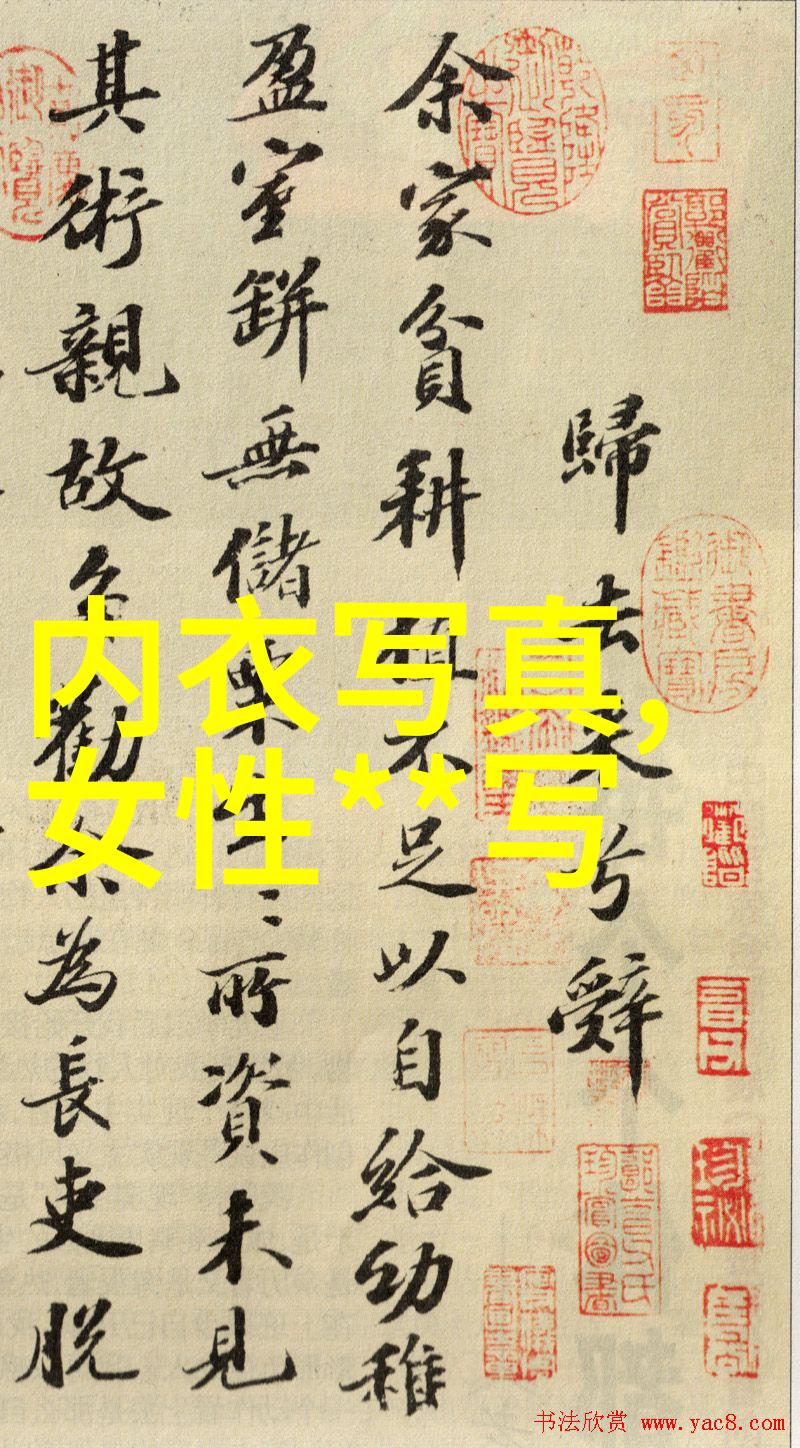 歸去來兮辭
余家貧耕植不足以自給幼稚
盈室缾無儲粟生〻所資未見
其術親故多勸余為長吏脫
内衣写真,
女性**写
乾隆御覽之寶
御書房鑑藏寶
书法欣赏 www.yac8.com